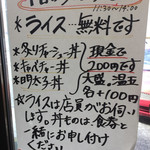 11:30〜14:00
*ライス…無料です
*炙りチャーシュー丼
*キムチャー丼
*明太子丼
現金で
200円です
大盛、温玉
各+100円
*ライスは店員がお伺い
します。丼ものは、食券と
一緒にお申付け
ください